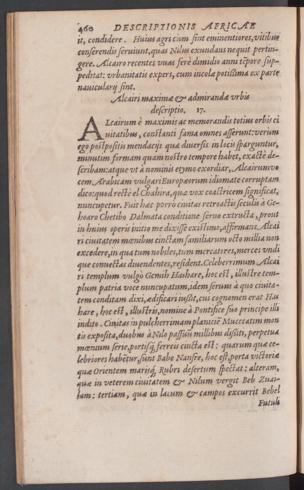 460 DESCRIPTIONIS AFRICAE
ii, condidere. Huius agri cum sint eminentiores, vitibus
conserendis seruiunt, quas Nilus exundans nequit pertin-
gere. Alcairo recentes vuas ferè dimidio anni tẽpore sup-
peditat: vrbanitatis expers, cum incolæ potissima ex parte
nauicularij sint.
Alcairi maximæ & admirandæ vrbis
descriptio. 17.
ALcairum è maximis ac memorandis totius orbis ci
uitatibus, constanti fama omnes asserunt: verùm
ego postpositis mendacijs quæ diuersis in locis sparguntur,
minutim firmam quam nostro tempore habet, exactè de-
scribam: atque vt à nominis etymo exordiar, Alcairum vo
cem Arabicam vulgari Europæorum idiomate corruptam
dico: quod rectè el Chahira, quæ vox coactricem significat,
nuncupetur. Fuit hæc porrò ciuitas retroactis seculis à Ge-
hoare Chetibo Dalmata conditione seruo extructa, prout
in huius operis initio me dixisse existimo, affirmans. Alcai
ri ciuitatem mœnibus cinctam familiarum octo millia non
excedere, in qua tum nobiles, tum mercatores, merces vndi
que conuectas diuendentes, resident. Celeberrimum Alcai
ri templum vulgò Gemih Hashare, hoc est, illustre tem-
plum patria voce nuncupatum, idem seruus à quo ciuita-
tem conditam dixi, ædificari iussit, cui cognomen erat Has
hare, hoc est, illustris, nomine à Pontifice suo principe illi
indito. Ciuitas in pulcherrimam planiciẽ Muccatam mon
tis exposita, duobus à Nilo passuũ millibus dissita, perpetua
mœnium serie, portisq; ferreis cincta est: quarum quæ ce-
lebriores habẽtur, sunt Babe Nansre, hoc est, porta victoriæ
quæ Orientem marisq́; Rubri desertum spectat: alteram,
quæ in veterem ciuitatem & Nilum vergit Beb Zuai-
lam: tertiam, quæ in lacum & campos excurrit Bebel
Futuh